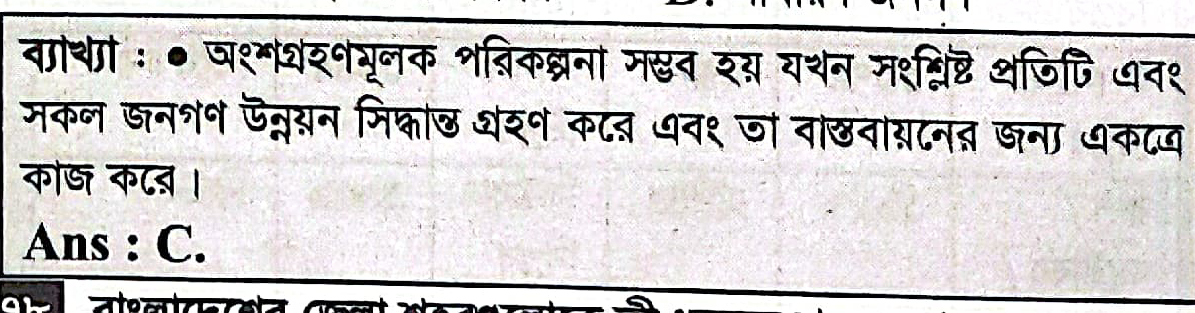 ব্যাখ্যা : ● অংশগ্রহণমূলক পরিকল্পনা সম্ভব হয় যখন সংশ্লিষ্ট প্রতিটি এবং
সকল জনগণ উন্নয়ন সিদ্ধান্ত গ্রহণ করে এবং তা বাস্তবায়নের জন্য একত্রে
কাজ করে।
Ans : C.